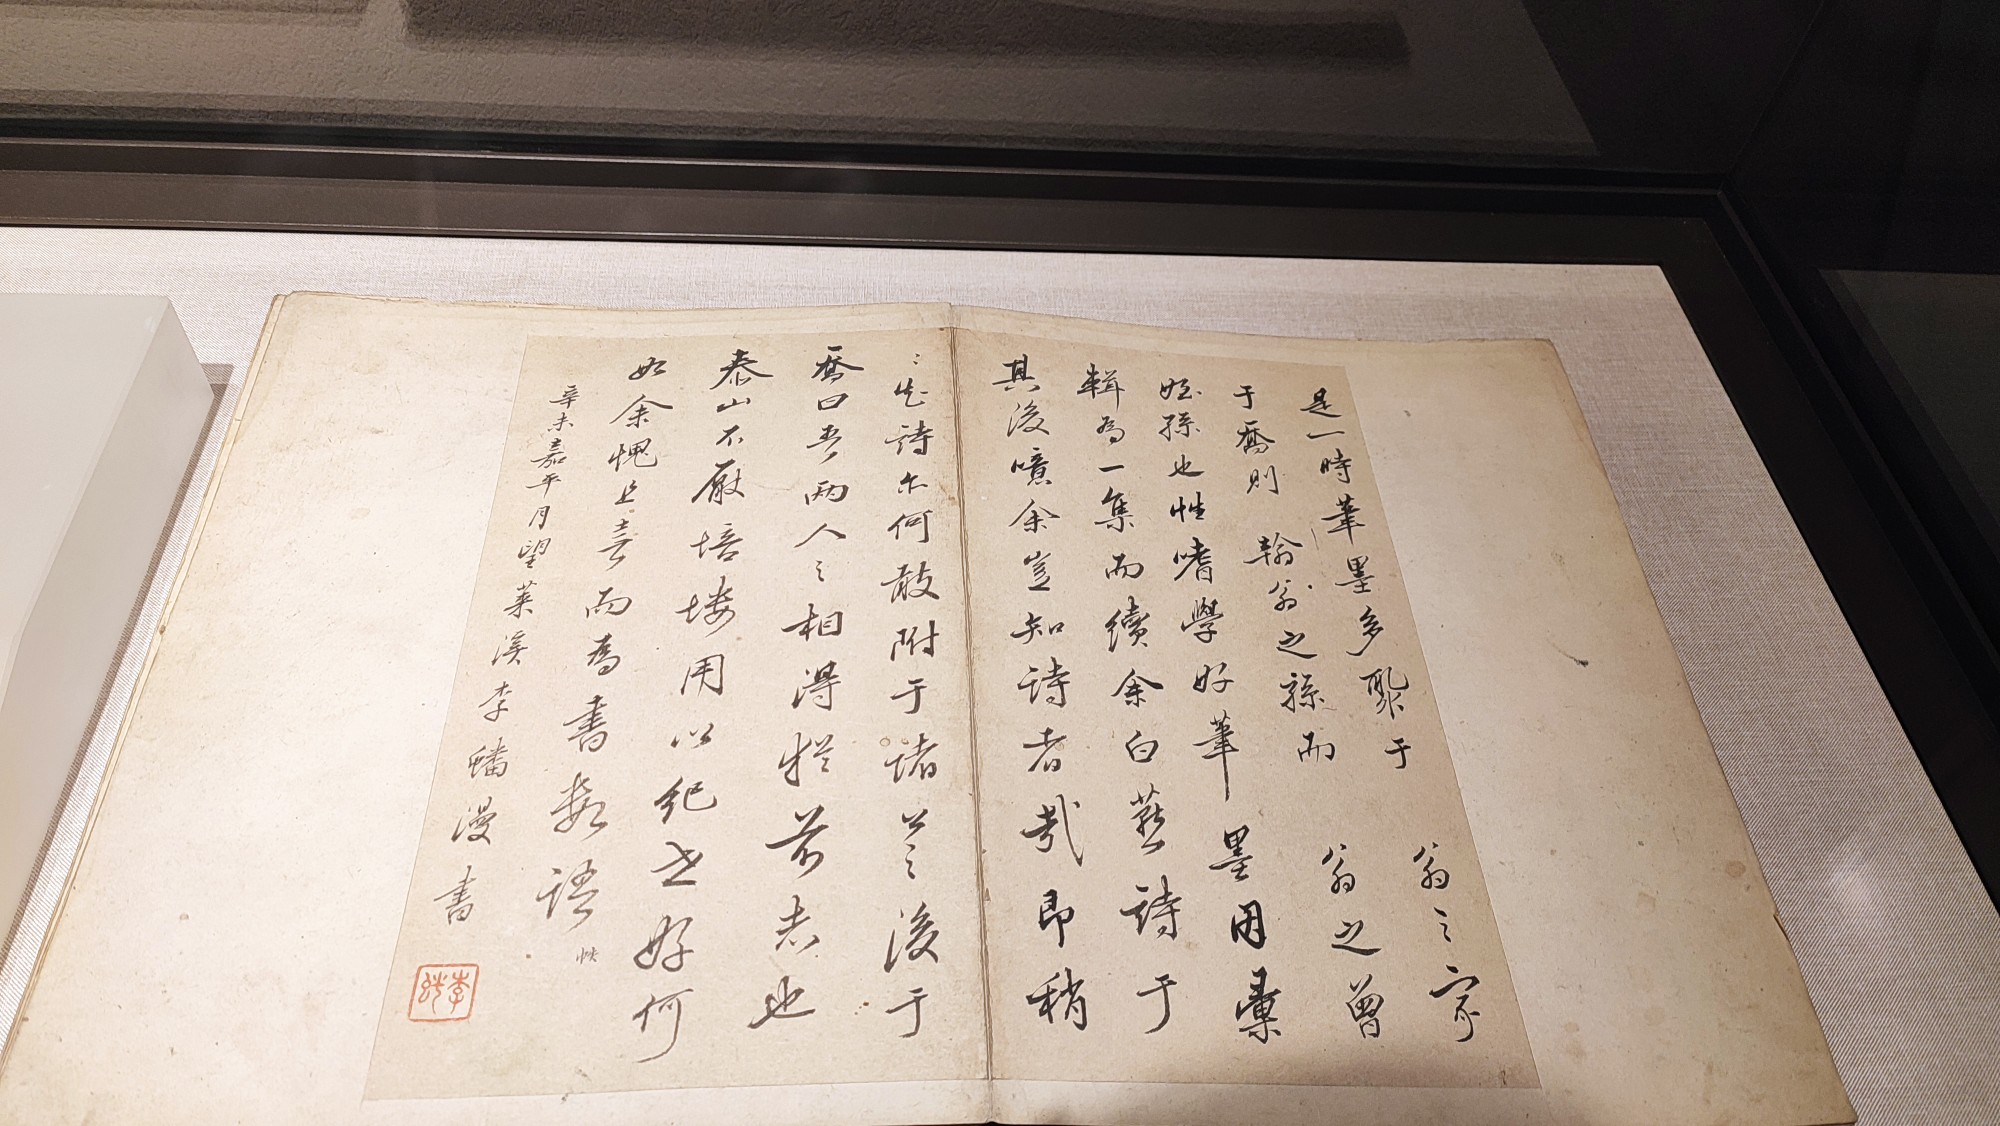 是一時筆墨多聚于
翁之家
于喬則
翰翁之孫而
翁之曾
姪孫也性嗜學好筆墨因彙
輯為一集而續余白燕詩于
其後噫余豈知詩者哉即稍
知詩亦何敢附于諸公之後于
喬曰吾兩人之相得形者也
泰山不厭培塿用以紀世好何
如余愧且喜而為書數語
辛未嘉平月望萊溪李蟠漫書
李